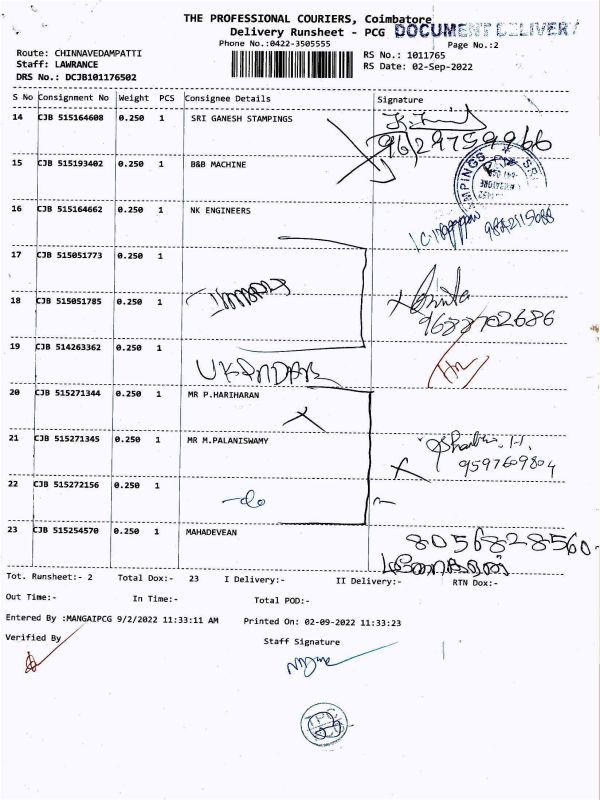 THE PROFESSIONAL COURIERS, Coimbatore
Delivery Runsheet - PCG DOCUMENT DELIVERY
Phone No.:0422-3505555
Page No.:2
Route: CHINNAVEDAMPATTI
RS No.: 1011765
Staff: LAWRANCE
RS Date: 02-Sep-2022
DRS No.: DCJB101176502
S No Consignment No Weight PCS Consignee Details Signature
14 CJB 515164608 0.250 1 SRI GANESH STAMPINGS
9629759966
15 CJB 515193402 0.250 1 B&B MACHINE
16 CJB 515164662 0.250 1 NK ENGINEERS
9842115088
17 CJB 515051773 0.250 1
18 CJB 515051785 0.250 1
9688702686
19 CJB 514263362 0.250 1
20 CJB 515271344 0.250 1 MR P.HARIHARAN
21 CJB 515271345 0.250 1 MR M.PALANISWAMY
9597609804
22 CJB 515272156 0.250 1 -do
23 CJB 515254570 0.250 1 MAHADEVEAN 8056828560
Tot. Runsheet:- 2 Total Dox:- 23 I Delivery:- II Delivery:- RTN Dox:-
Out Time:- In Time:- Total POD:-
Entered By :MANGAIPCG 9/2/2022 11:33:11 AM Printed On: 02-09-2022 11:33:23
Verified By Staff Signature